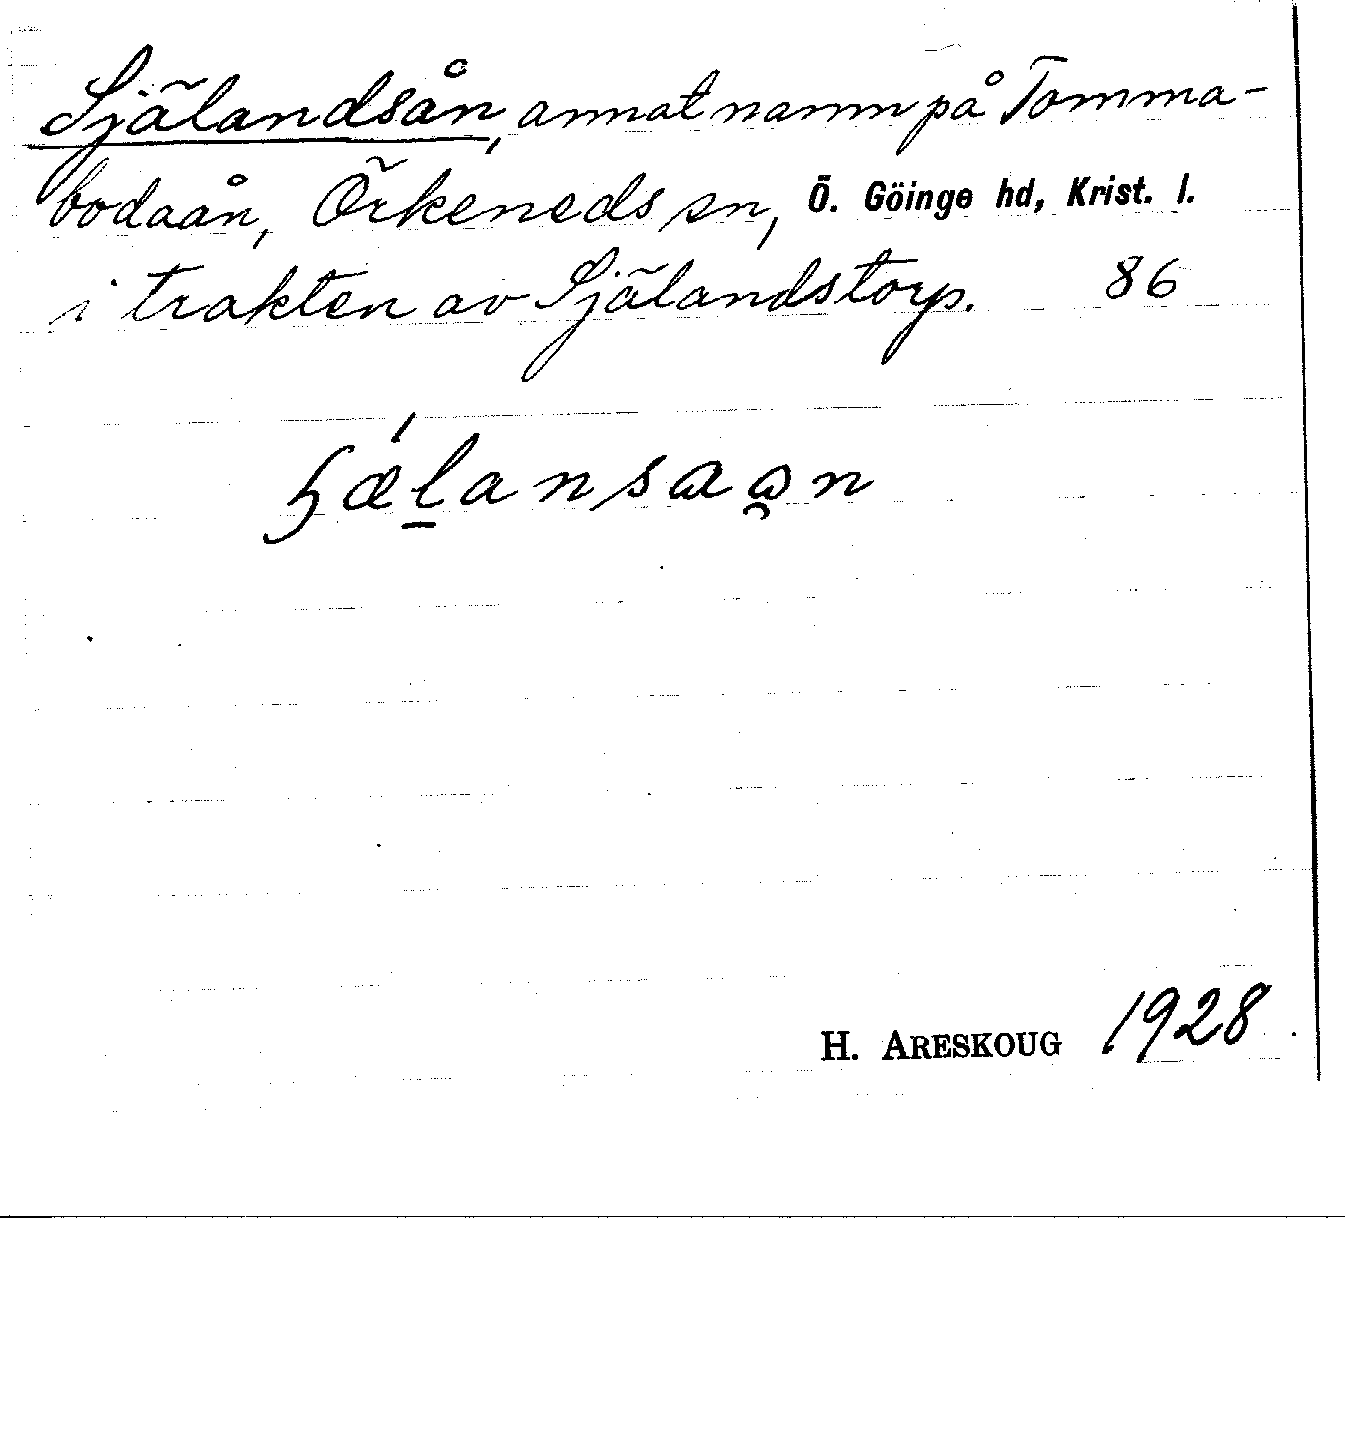 Själandsån, annat namn på Tomma-
bodaån, Örkeneds sn, Ö. Göinge hd, Krist. l.
i trakten av Själandstorp. 86
H. ARESKOUG 1928